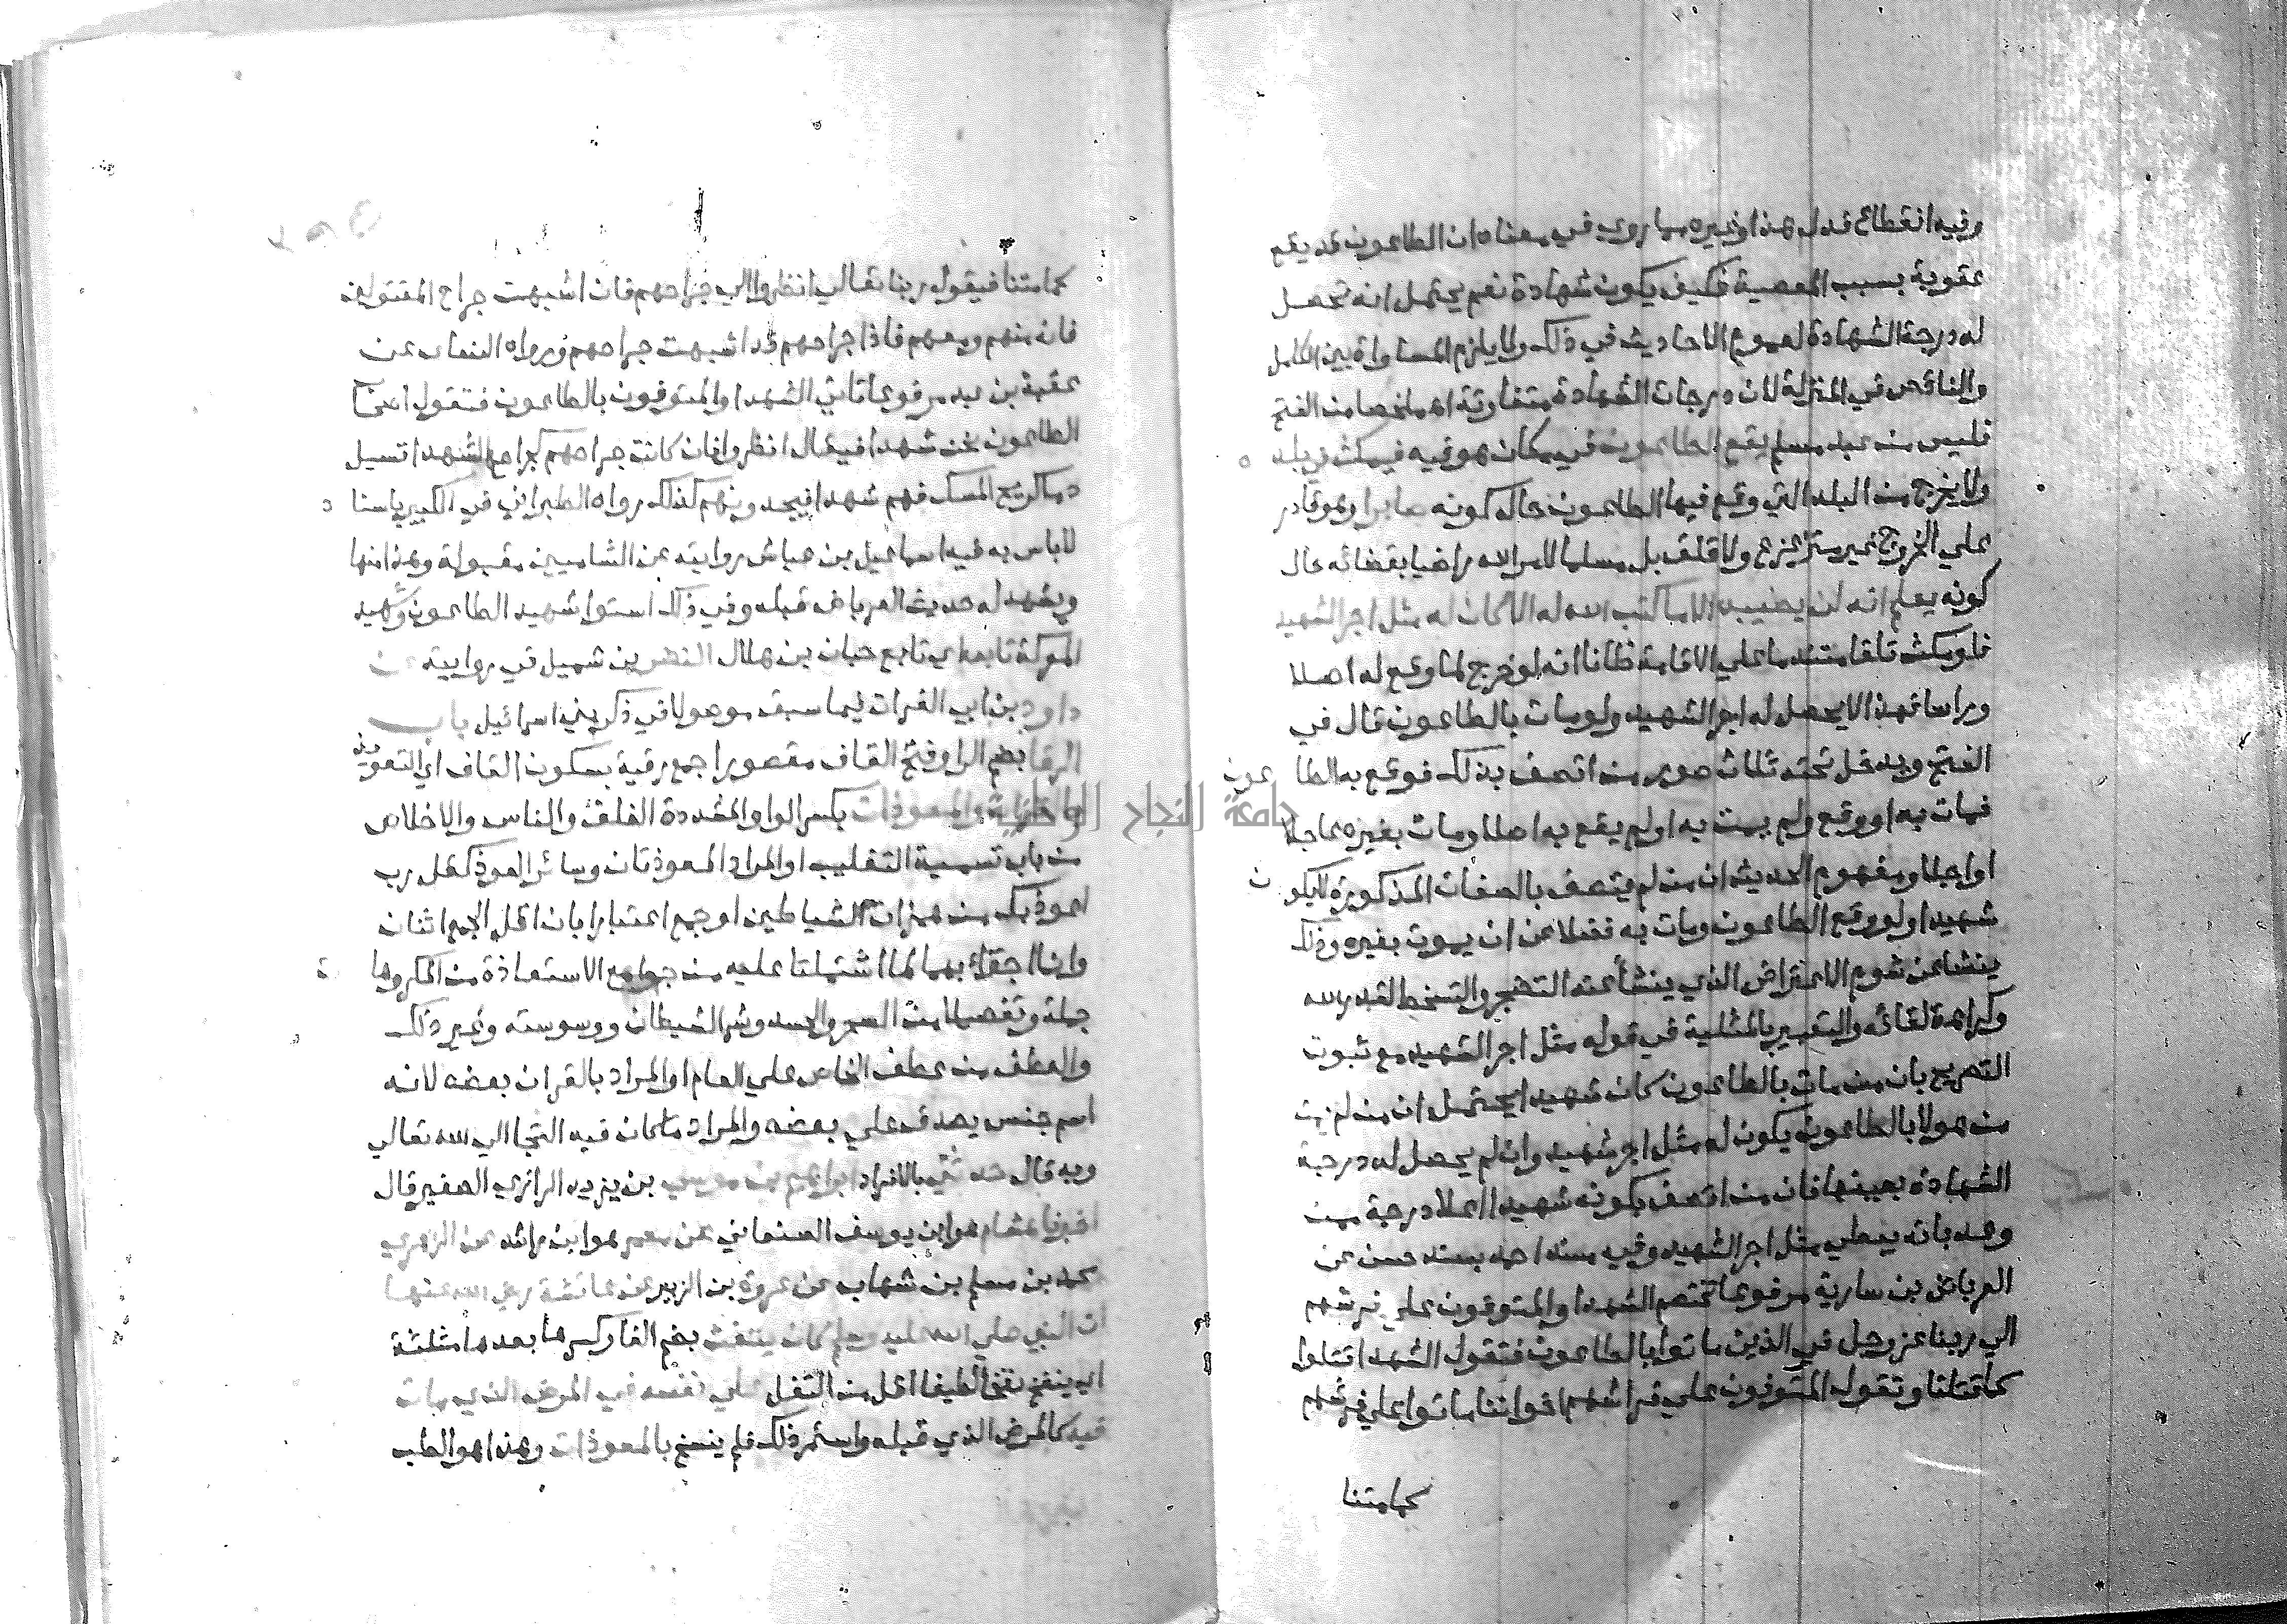 وفيه انقطاع فدل هذا وغيره مما روي في معناه ان الطاعون قد يقع
عقوبة بسبب المعصية فكيف يكون شهادة نعم يحتمل انه تحصل
له درجة الشهادة لعموم الاحاديث في ذلك ولا يلزم المساواة بين الكامل
والناقص في المنزلة لان درجات الشهادة متفاوتة اه ملخصا من الفتح
فليس من عبد مسلم يقع الطاعون في مكان هو فيه فيمكث في بلده
ولا يخرج من البلد التي وقع فيها الطاعون حال كونه صابرا وهو قادر
علي الخروج غير منزعج ولا قلق بل مسلما لامر الله راضيا بقضائه حال
كونه يعلم انه لن يصيبه الا ما كتب الله له الا كان له مثل اجر الشهيد
فلو مكث قلقا متندما علي الاقامة ظانا انه لو خرج لما وقع له اصلا
وراسا فهذا لا يحصل له اجر الشهيد ولو مات بالطاعون قال في
الفتح ويدخل تحته ثلاث صور من اتصف بذلك فوقع به الطا عون
فمات به او وقع ولم يمت به او لم يقع به اصلا ومات بغيره عاجلا
او اجلا ومفهوم الحديث ان من لم يتصف بالصفات المذكورة لا يكون
شهيدا ولو وقع الطاعون ومات به فضلا عن ان يموت بغيره وذلك
ينشا عن شوم الاعتراض الذي ينشأ عنه التضجر والتسخط لقدر الله
وكراهة لقائه والتعبير بالمثلية في قوله مثل اجر الشهيد مع ثبوت
التصريح بان من مات بالطاعون كان شهيدا يحتمل ان من لم يمت
من هولا بالطاعون يكون له مثل اجر شهيد وان لم يحصل له درجة
الشهادة بعينها فان من اتصف بكونه شهيدا اعلا درجة ممن
وعد بانه يعطي مثل اجر الشهيد وفي مسند احمد بسند حسن عن
العرباض بن سارية مرفوعا تختصم الشهدا والمتوفون علي فرشهم
الي ربنا عز وجل في الذين ماتوا بالطاعون فتقول الشهدا قتلوا
كما قتلنا وتقول المتوفون علي فراشهم اخواننا ماتوا علي فرشهم
كما متنا
كما متنا فيقول ربنا تعالي انظروا الي جراحهم فان اشبهت جراح المقتولين
فانه منهم ومعهم فاذا جراحهم قد اشبهت جراحهم ورواه النساى عن
عقبة بن عبد مرفوعا تاتي الشهدا والمتوفون بالطاعون فتقول اصحاب
الطاعون نحن شهدا فيقال انظروا فان كانت جراحهم كجراح الشهدا تسيل
دما كريح المسك فهم شهدا فيجدونهم كذلك رواه الطبراني في الكبير باسناد
لا باس به فيه اسماعيل بن عياش روايته عن الشاميين مقبولة وهذا منها
ويشهد له حديث العرباض قبله وفي ذلك استوا شهيد الطاعون وشهيد
المعركة تابعه اي تابع حبان بن هلال النضر بن شميل في روايته عن
داود بن ابي الفرات فيما سبق موصولا في ذكر بني اسرائيل باب
الرقا بضم الرا وفتح القاف مقصورا جمع رقية بسكون القاف اي التعويذ
بالقران والمعوذات بكسر الواو المشددة الفلق والناس والاخلاص
من باب تسمية التغليب او المراد المعوذتان وسائر العوذ كقل رب
اعوذ بك من همزات الشياطين او جمع اعتبارا بان اقل الجمع اثنان
وانما اجتزأ بهما لما اشتملتا عليه من جوامع الاستعاذة من المكروهات
جملة وتفصيلا من السحر والحسد وشر الشيطان ووسوسته وغير ذلك
والعطف من عطف الخاص علي العام او المراد بالقران بعضه لانه
اسم جنس يصدق علي بعضه والمراد ما كان فيه التجا الي الله تعالي
وبه قال حدثني بالافراد ابراهيم بن موسي بن يزيد الرازي الصغير قال
اخبرنا هشام هو ابن يوسف الصنعاني عن معمر هو ابن راشد عن الزهري
محمد بن مسلم بن شهاب عن عروة بن الزبير عن عائشة رضي الله عنها
ان النبي صلي الله عليه وسلم كان ينفث بضم الفا وكسرها بعدها مثلثة
اي ينفخ نفخا لطيفا اقل من التفل علي نفسه في المرض الذي مات
فيه كالمرض الذي قبله واستمر ذلك فلم ينسخ بالمعوذات وهذا هو الطب
جامعة النجاح الوطنية